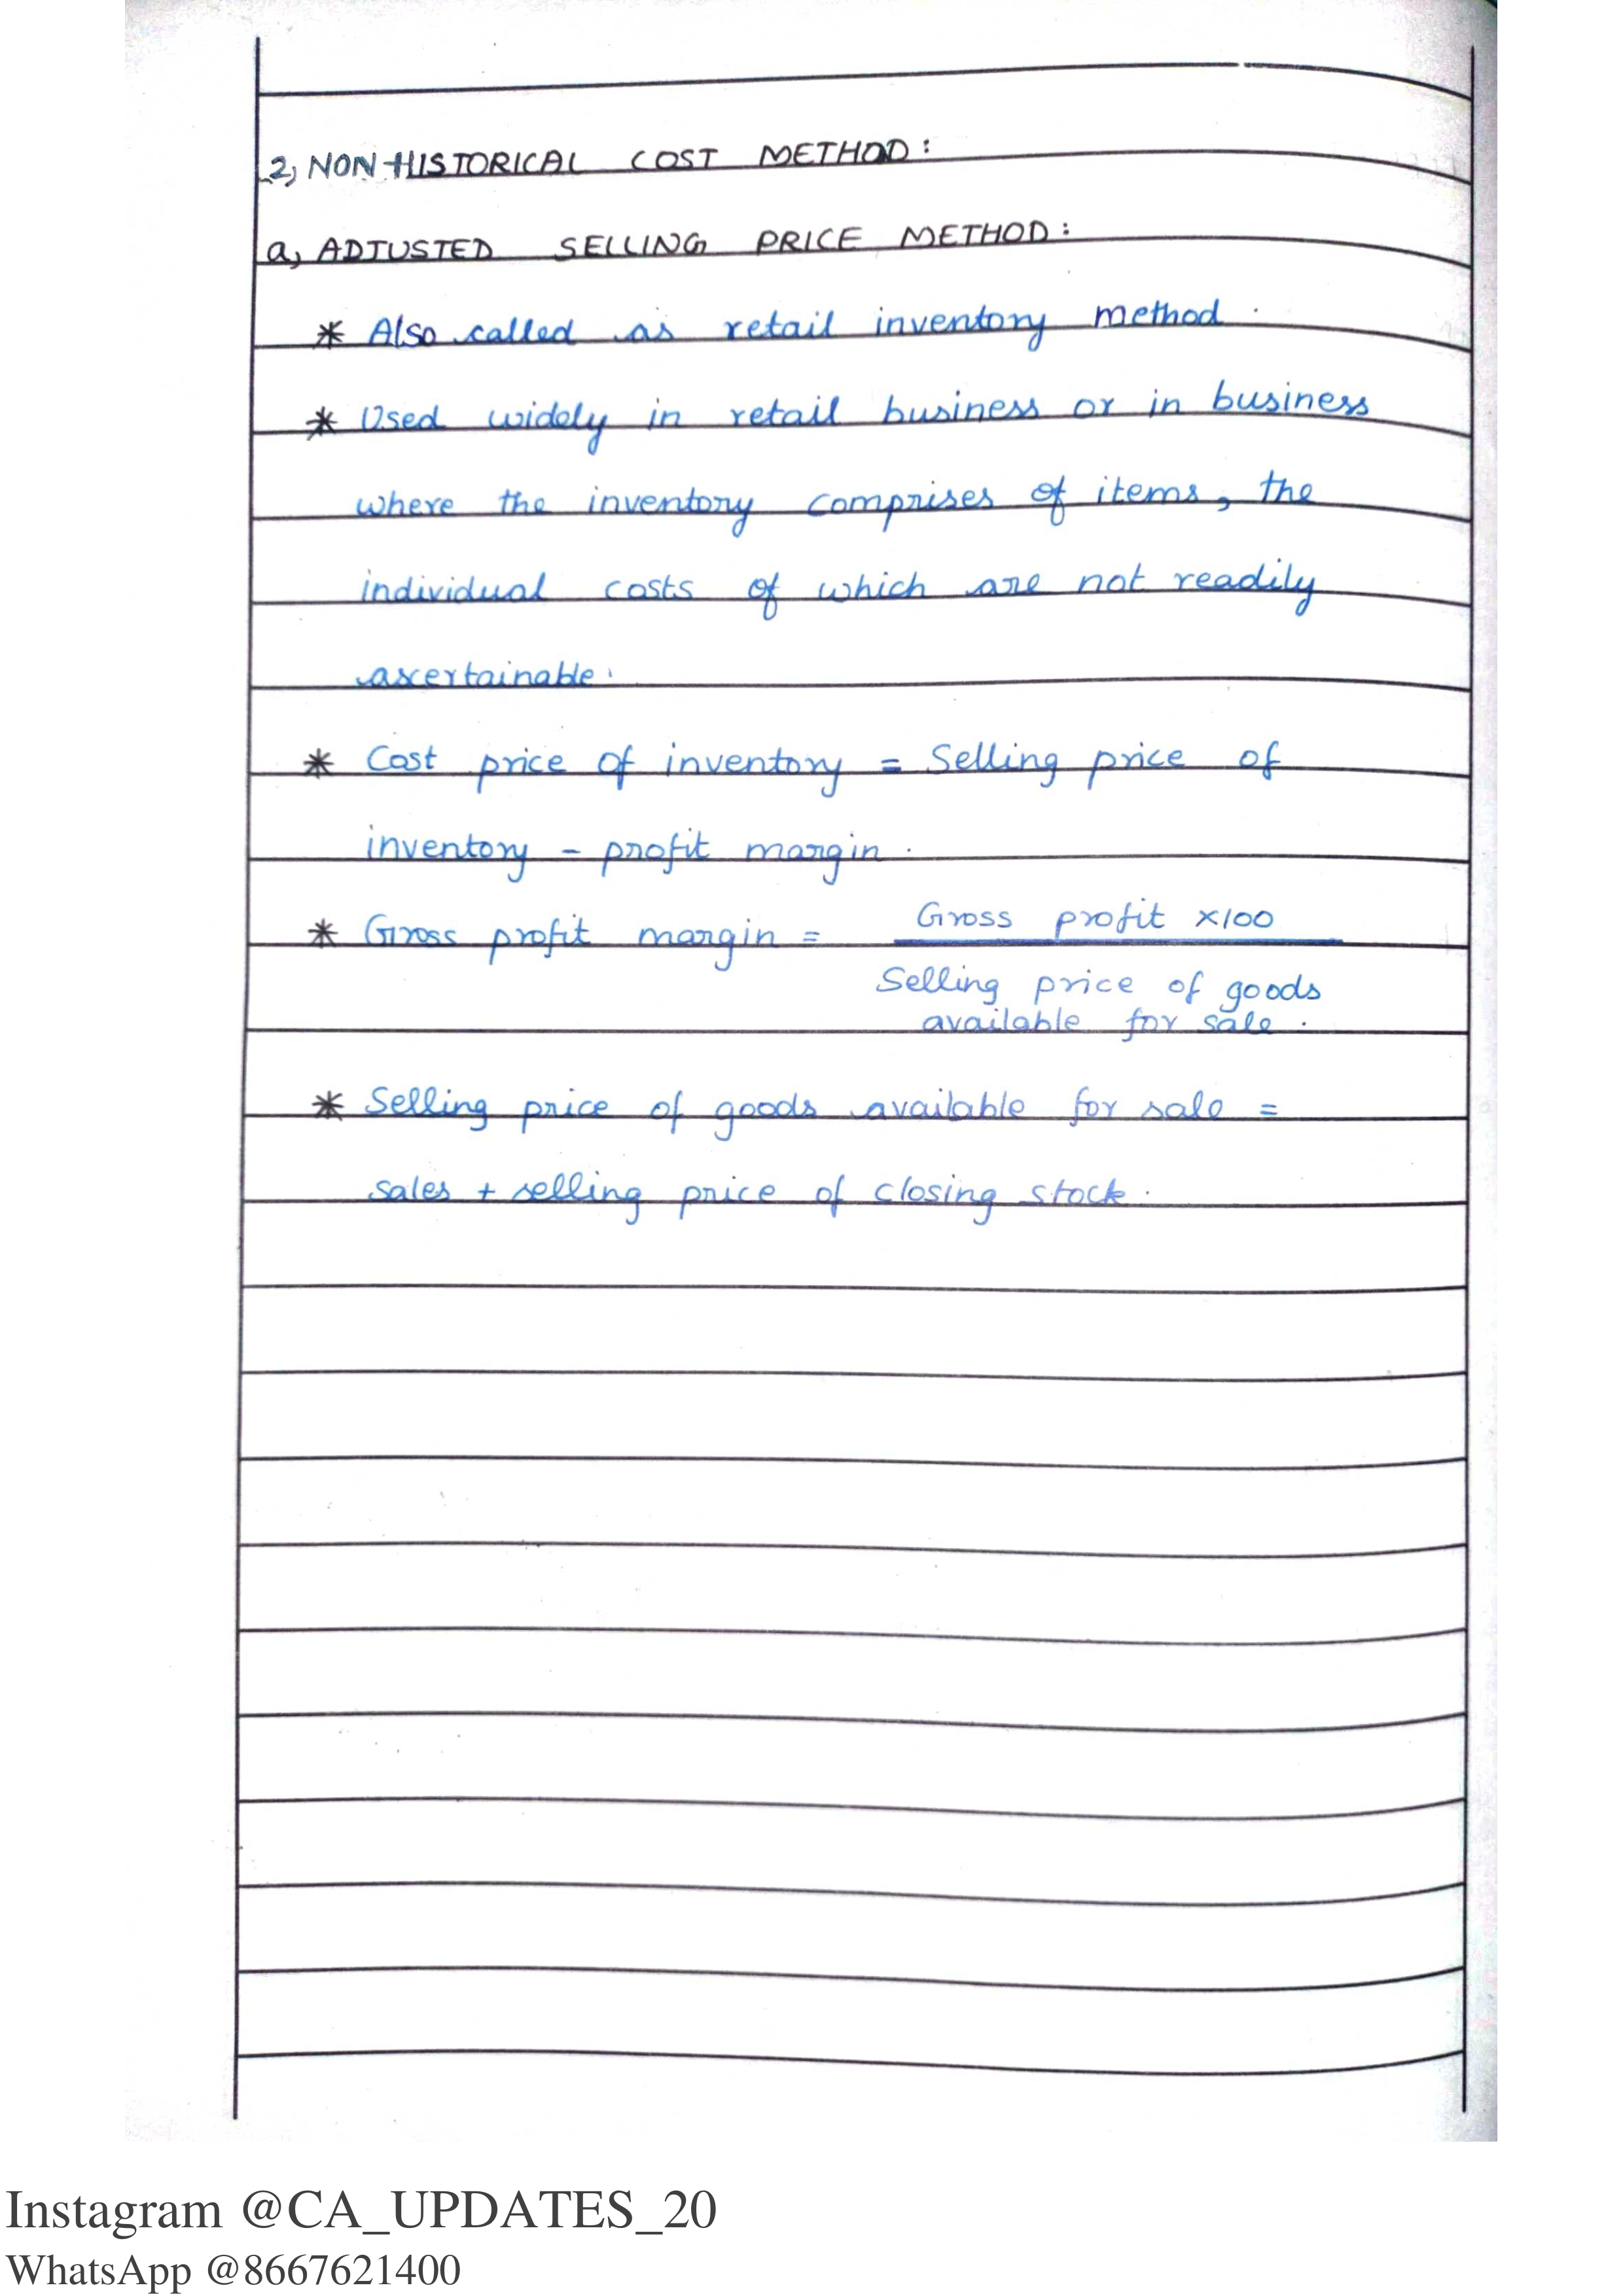 2, NON-HISTORICAL COST METHOD:
a, ADJUSTED SELLING PRICE METHOD:
* Also called as retail inventory method.
* Used widely in retail business or in business
where the inventory comprises of items, the
individual costs of which are not readily
ascertainable.
* Cost price of inventory = Selling price of
inventory - profit margin.
* Gross profit margin = Gross profit ×100
Selling price of goods
available for sale.
* Selling price of goods available for sale =
sales + selling price of closing stock.
Instagram @CA_UPDATES_20
WhatsApp @8667621400